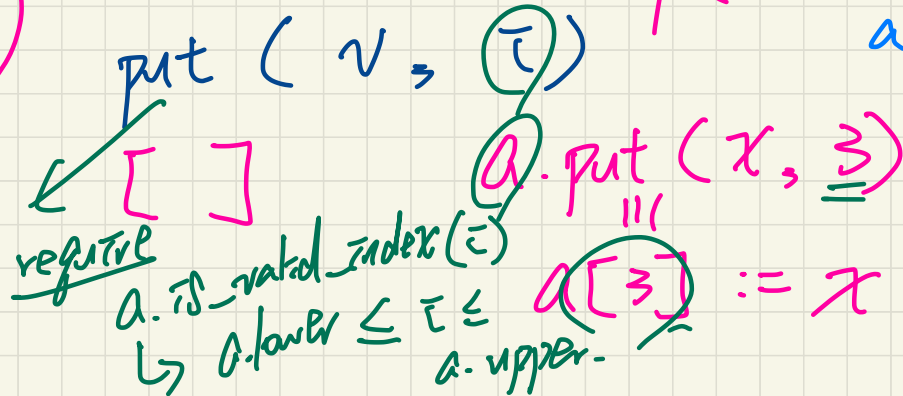 put ( v, i )
a
[ ]
a.put (x, 3)
≡
require
a.is_valid_index(i)
a[3] := x
↳ a.lower ≤ i ≤ a.upper.